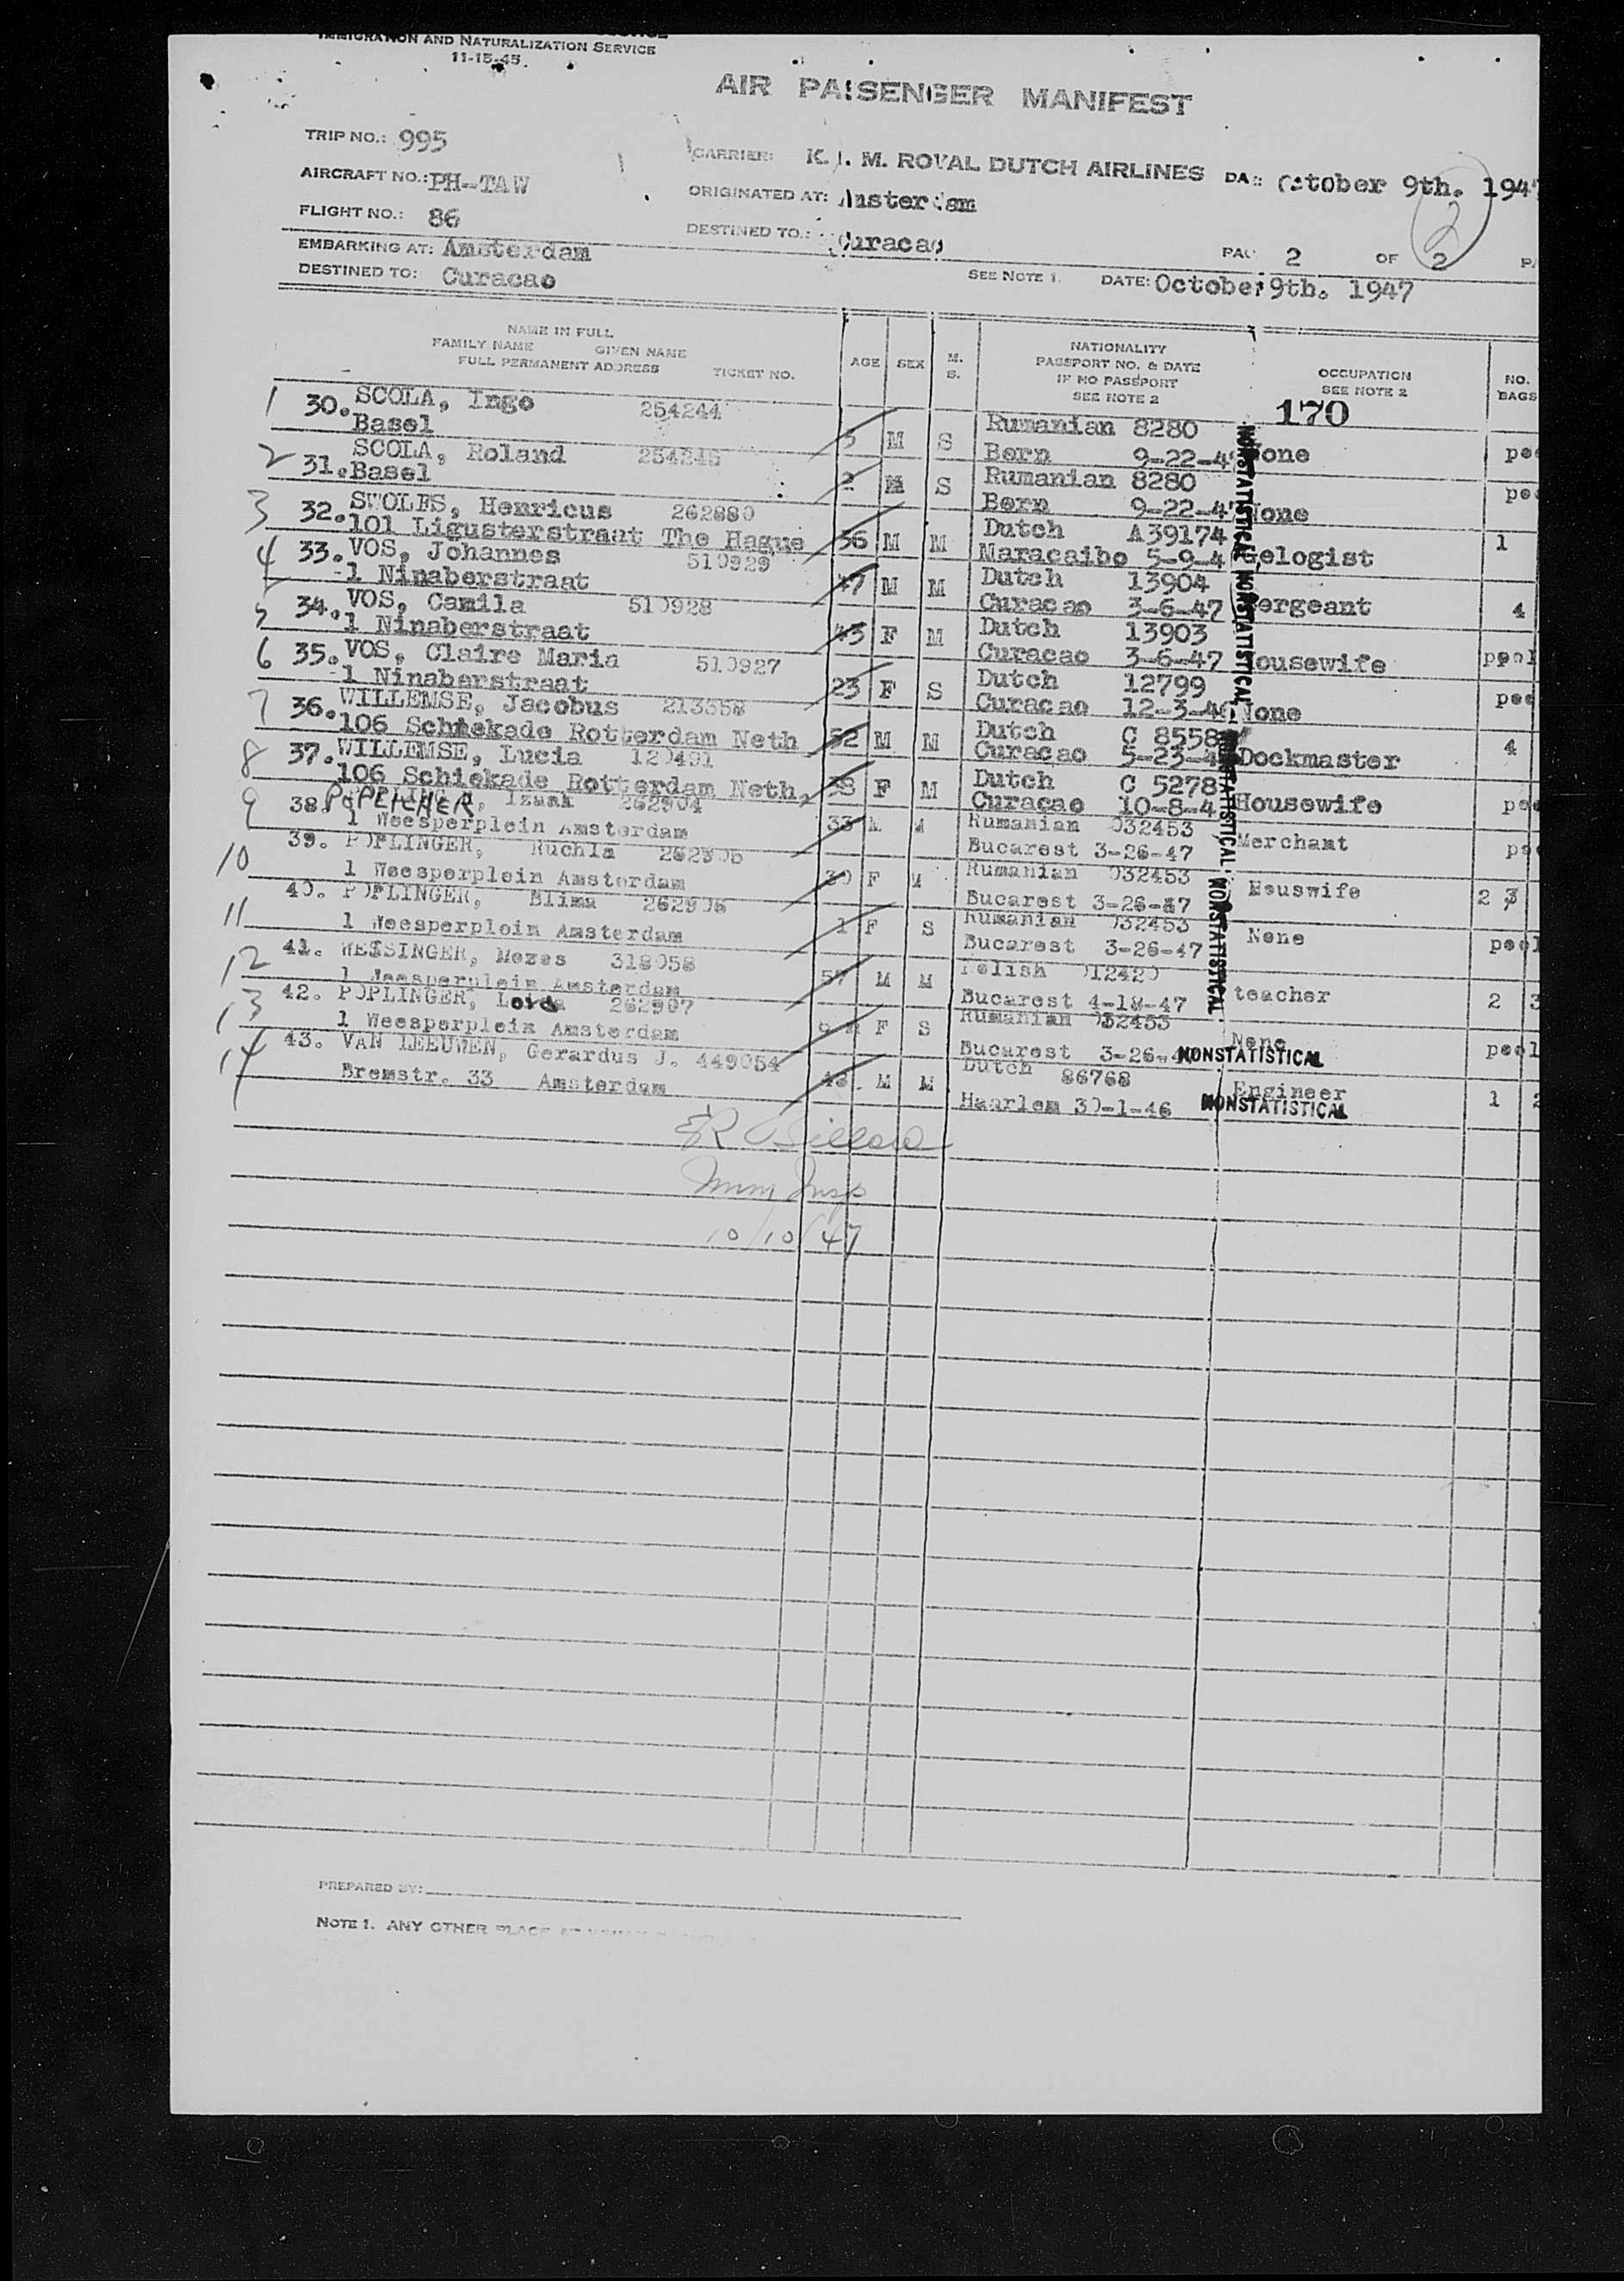 IMMIGRATION AND NATURALIZATION SERVICE
11-15-45
AIR PASSENGER MANIFEST
TRIP NO.: 995
CARRIER: K. L. M. ROYAL DUTCH AIRLINES
October 9th. 1947
AIRCRAFT NO.: PH-TAW
ORIGINATED AT: Amsterdam
FLIGHT NO.: 86
DESTINED TO.: Curacao
2
EMBARKING AT: Amsterdam
2 OF 2
DESTINED TO: Curacao
SEE NOTE 1. DATE: October 9th. 1947
NAME IN FULL
FAMILY NAME GIVEN NAME
FULL PERMANENT ADDRESS TICKET NO.
AGE SEX M. S.
NATIONALITY
PASSPORT NO. & DATE
IF NO PASSPORT
SEE NOTE 2
OCCUPATION
SEE NOTE 2
NO. BAGS
170
1 30. SCOLA, Ingo 254244 Rumanian 8280
Basel M S Bern 9-22-4 None
2 31. SCOLA, Roland Rumanian 8280
Basel 2 M S Bern 9-22-4 None
3 32. Henricus 262880 Dutch A39174
101 Ligusterstraat The Hague 36 M M Maracaibo 5-9-4 1
4 33. VOS, Johannes 510929 Dutch 13904
1 Ninaberstraat 47 M M Curacao 3-6-47 Sergeant 4
5 34. VOS, Camila 510928 Dutch 13903
1 Ninaberstraat F M Curacao 3-6-47 Housewife pool
6 35. VOS, Claire Maria 510927 Dutch 12799
1 Ninaberstraat 23 F S Curacao 12-3-46 None
7 36. WILLEMSE, Jacobus Dutch C 8558
106 Schiekade Rotterdam Neth 52 M M Curacao 5-23-4 Dockmaster 4
8 37. WILLEMSE, Lucia 120491 Dutch C 5278
106 Schiekade Rotterdam Neth. 38 F M Curacao 10-8-4 Housewife
9 38. Izaak 262904 Rumanian 032453
1 Weesperplein Amsterdam 33 M M Bucarest 3-26-47 Merchant
10 39. POPLINGER, Ruchla Rumanian 032453
1 Weesperplein Amsterdam 30 F M Bucarest 3-26-47 Houswife 2
11 40. POPLINGER, Blima Rumanian 032453
1 Weesperplein Amsterdam 1 F S Bucarest 3-26-47 None pool
12 41. Mozes 318058 Polish 012420
1 Weesperplein Amsterdam M M Bucarest 4-18-47 teacher 2 3
13 42. POPLINGER, 262907 Rumanian 032453
1 Weesperplein Amsterdam F S Bucarest 3-26-4 None pool
NONSTATISTICAL
14 43. VAN LEEUWEN, Gerardus J. 449054 Dutch 86768
Bremstr. 33 Amsterdam M M Haarlem 30-1-46 Engineer 1 2
NONSTATISTICAL
NONSTATISTICAL
NONSTATISTICAL
NONSTATISTICAL
NONSTATISTICAL
Imm Insp
10/10/47
PREPARED BY:
NOTE 1. ANY OTHER PLACE